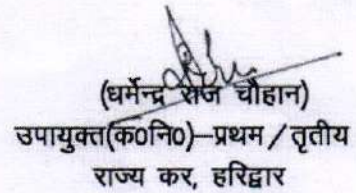 (धर्मेन्द्र राज चौहान)
उपायुक्त(क0नि0)–प्रथम / तृतीय
राज्य कर, हरिद्वार